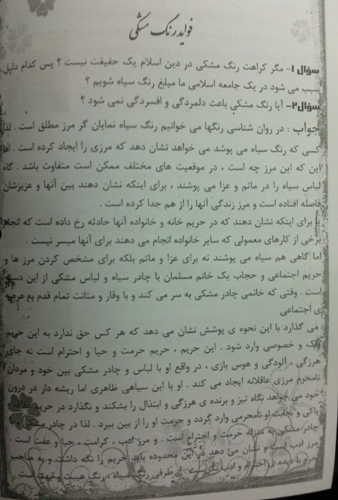 فواید رنگ مشکی
سؤال ۱- مگر کراهت رنگ مشکی در دین اسلام یک حقیقت نیست ؟ پس کدام دلیل
سبب می شود در یک جامعه اسلامی ما مبلغ رنگ سیاه شویم ؟
سؤال۲- آیا رنگ مشکی باعث دلمردگی و افسردگی نمی شود ؟
جواب : در روان شناسی رنگها می خوانیم رنگ سیاه نمایان گر مرز مطلق است . لذا
کسی که رنگ سیاه می پوشد می خواهد نشان دهد که مرزی را ایجاد کرده است . اما
این که این مرز چه است ، در موقعیت های مختلف ممکن است متفاوت باشد . گاه
لباس سیاه را در ماتم و عزا می پوشند ، برای اینکه نشان دهند بین آنها و عزیزشان
فاصله افتاده است و مرز زندگی آنها را از هم جدا کرده است .
برای اینکه نشان دهند که در حریم خانه و خانواده آنها حادثه رخ داده است که انجام
برخی از کارهای معمولی که سایر خانواده انجام می دهند برای آنها میسر نیست .
اما گاهی هم سیاه می پوشند نه برای عزا و ماتم بلکه برای مشخص کردن مرز ها و
حریم اجتماعی و حجاب یک خانم مسلمان با چادر سیاه و لباس مشکی از این دسته
است . وقتی که خانمی چادر مشکی به سر می کند و با وقار و متانت تمام قدم به عرصه
ی اجتماعی
می گذارد با این نحوه ی پوشش نشان می دهد که هر کس حق ندارد به این حریم
و خصوصی وارد شود . این حریم ، حریم حرمت و حیا و احترام است نه جای
هرزگی ، آلودگی و هوس بازی ، در واقع او با لباس و چادر مشکی بین خود و مردان
نامحرم مرزی عاقلانه ایجاد می کند . او با این سیاهی ظاهری اما ریشه دار در درون
خود می خواهد نگاه تیز و برنده ی هرزگی و ابتذال را بشکند و نگذارد در حریم
پاکی و نجابت او نامحرمی وارد گردد و حرمت او را از بین ببرد . لذا در چادر مشکی
چادر مشکی به منزله حرمت و احترام است . و مرز ادب ، کرامت ، حیا و عفت است
مرز ادب است و نشان می دهد هر این محدوده باید حریم را نگه داشت و به صاحب
از طرفی رنگ سیاه ، رنگ هیبت و